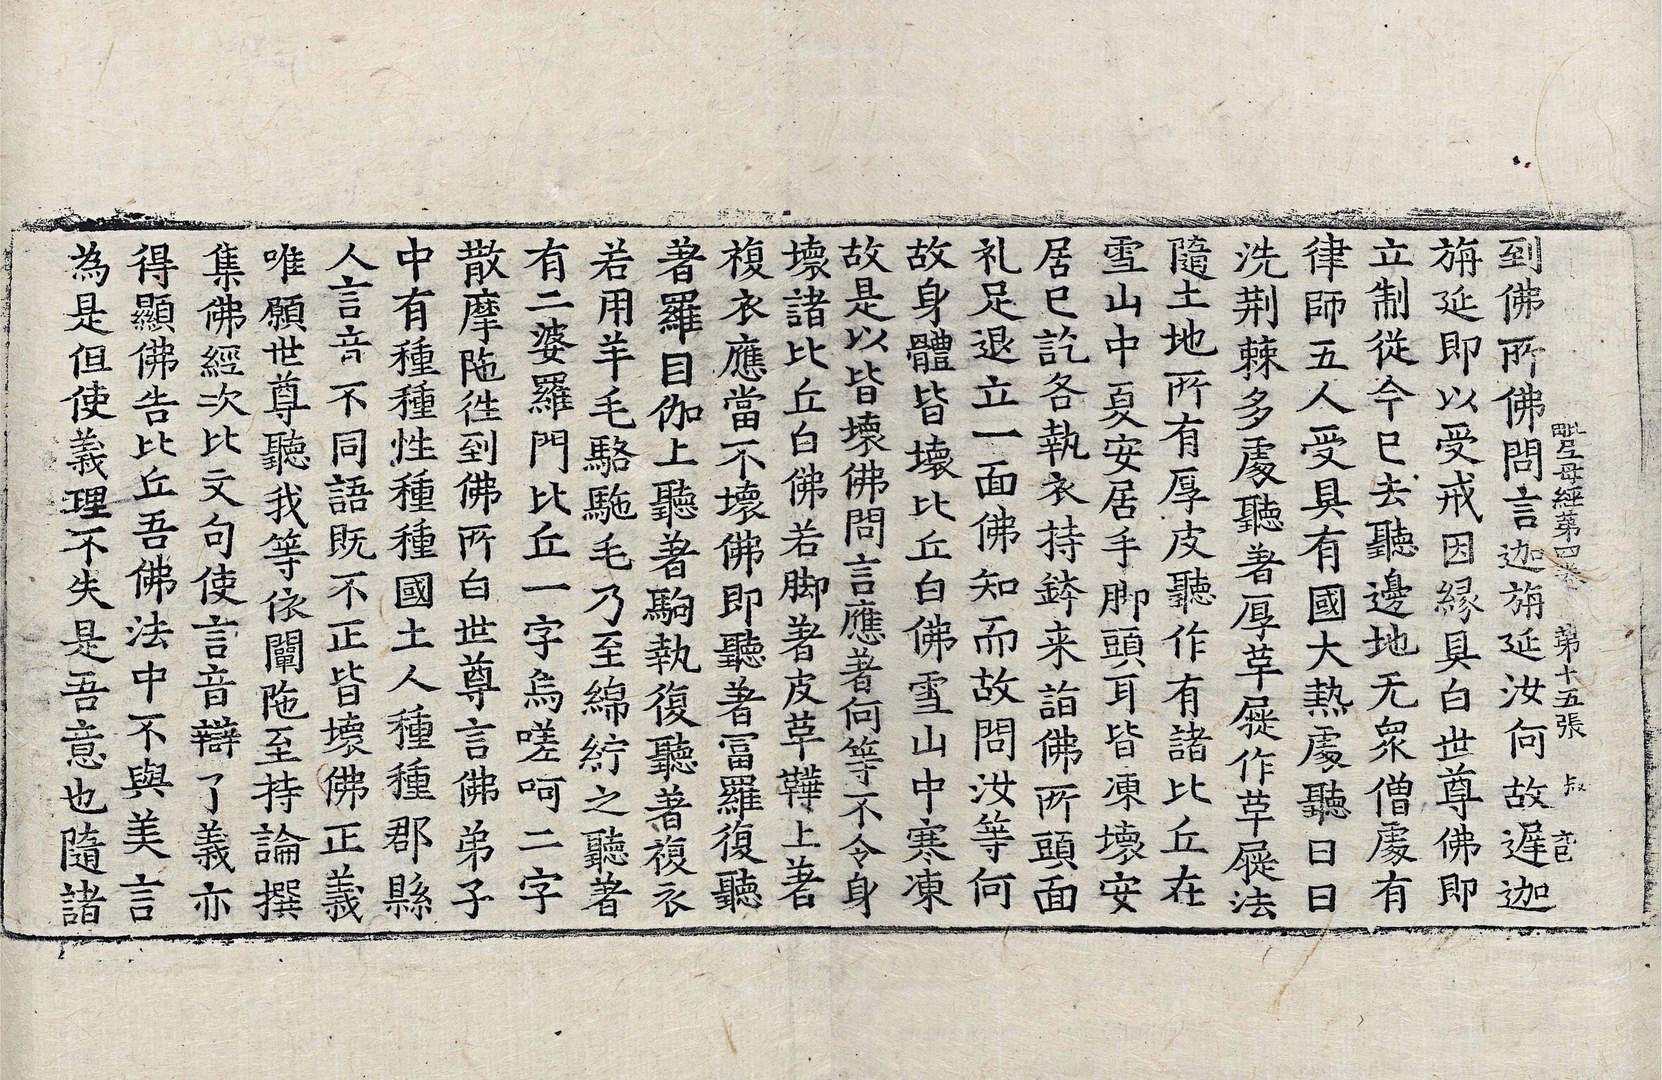 毗尼母經第四卷　第十五張　叔
到佛所佛問言迦旃延汝何故遲迦
旃延即以受戒因緣具白世尊佛即
立制從今已去聽邊地无衆僧處有
律師五人受具有國大熱處聽日日
洗荆棘多處聽著厚草屣作草屣法
隨土地所有厚皮聽作有諸比丘在
雪山中夏安居手脚頭耳皆凍壞安
居已訖各執衣持鉢来詣佛所頭面
礼足退立一面佛知而故問汝等何
故身體皆壞比丘白佛雪山中寒凍
故是以皆壞佛問言應著何等不令身
壞諸比丘白佛若脚著皮草鞾上著
複衣應當不壞佛即聽著冨羅復聽
著羅目伽上聽著駒執復聽著複衣
若用羊毛駱駞毛乃至綿紵之聽著
有二婆羅門比丘一字烏嗟呵二字
散摩陁徃到佛所白世尊言佛弟子
中有種種性種種國土人種種郡縣
人言音不同語既不正皆壞佛正義
唯願世尊聽我等依闡陁至持論撰
集佛經次比文句使言音辯了義亦
得顯佛告比丘吾佛法中不與美言
為是但使義理不失是吾意也隨諸